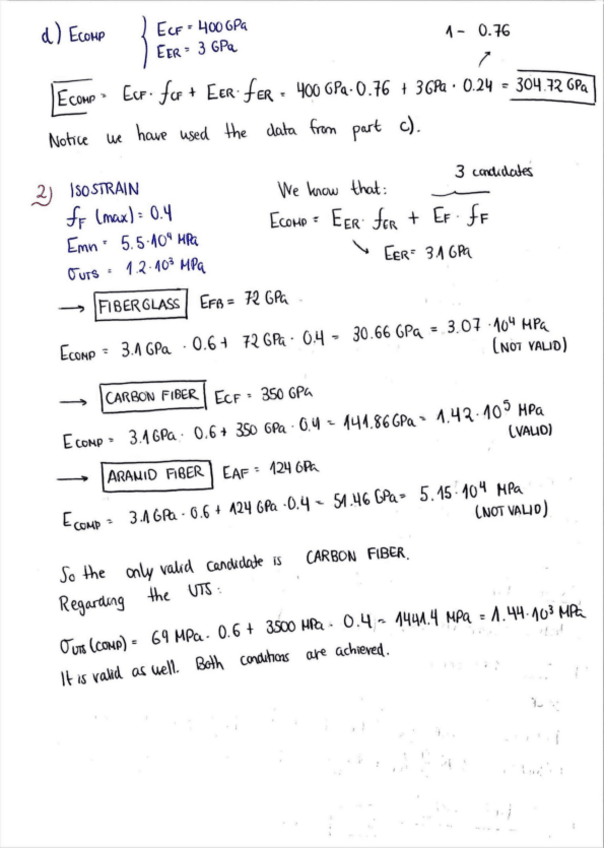 d) ECOMP { ECF = 400 GPa 1 - 0.76
EER = 3 GPa
ECOMP = ECF · fCF + EER · fER = 400 GPa · 0.76 + 3GPa · 0.24 = 304.72 GPa
Notice we have used the data from part c).
2) ISOSTRAIN We know that: 3 candidates
fF (max) = 0.4 ECOMP = EER · fER + EF · fF
Emin = 5.5·10⁴ MPa
EER = 3.1 GPa
σUTS = 1.2·10³ MPa
→ FIBERGLASS EFB = 72 GPa
ECOMP = 3.1 GPa · 0.6 + 72 GPa · 0.4 = 30.66 GPa = 3.07 · 10⁴ MPa
(NOT VALID)
→ CARBON FIBER ECF = 350 GPa
ECOMP = 3.1 GPa · 0.6 + 350 GPa · 0.4 = 141.86 GPa = 1.42 · 10⁵ MPa
(VALID)
→ ARAMID FIBER EAF = 124 GPa
ECOMP = 3.1 GPa · 0.6 + 124 GPa · 0.4 = 51.46 GPa = 5.15 · 10⁴ MPa
(NOT VALID)
So the only valid candidate is CARBON FIBER.
Regarding the UTS:
σUTS (COMP) = 69 MPa · 0.6 + 3500 MPa · 0.4 = 1441.4 MPa = 1.44 · 10³ MPa
It is valid as well. Both conditions are achieved.